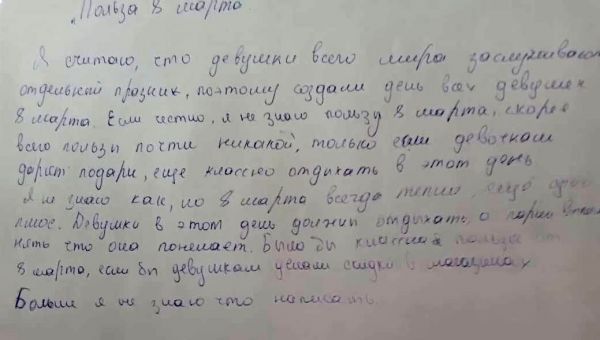 „Польза 8 марта.
Я считаю, что девушки всего мира заслуживают
отдельный празник, поэтому создали день всех девушек
8 марта. Если честно, я не знаю пользу 8 марта, скорее
всего пользы почти никакой, только если девочкам
дарят подарки, еще классно отдыхать в этот день
Я не знаю как, но 8 марта всегда тепло, ещё один
плюс. Девушки в этот день должны отдыхать, а парни
нять что она понемает. Было бы классной польза от
8 марта, если бы девушкам делали скидки в магазинах
Больше я не знаю что написать.